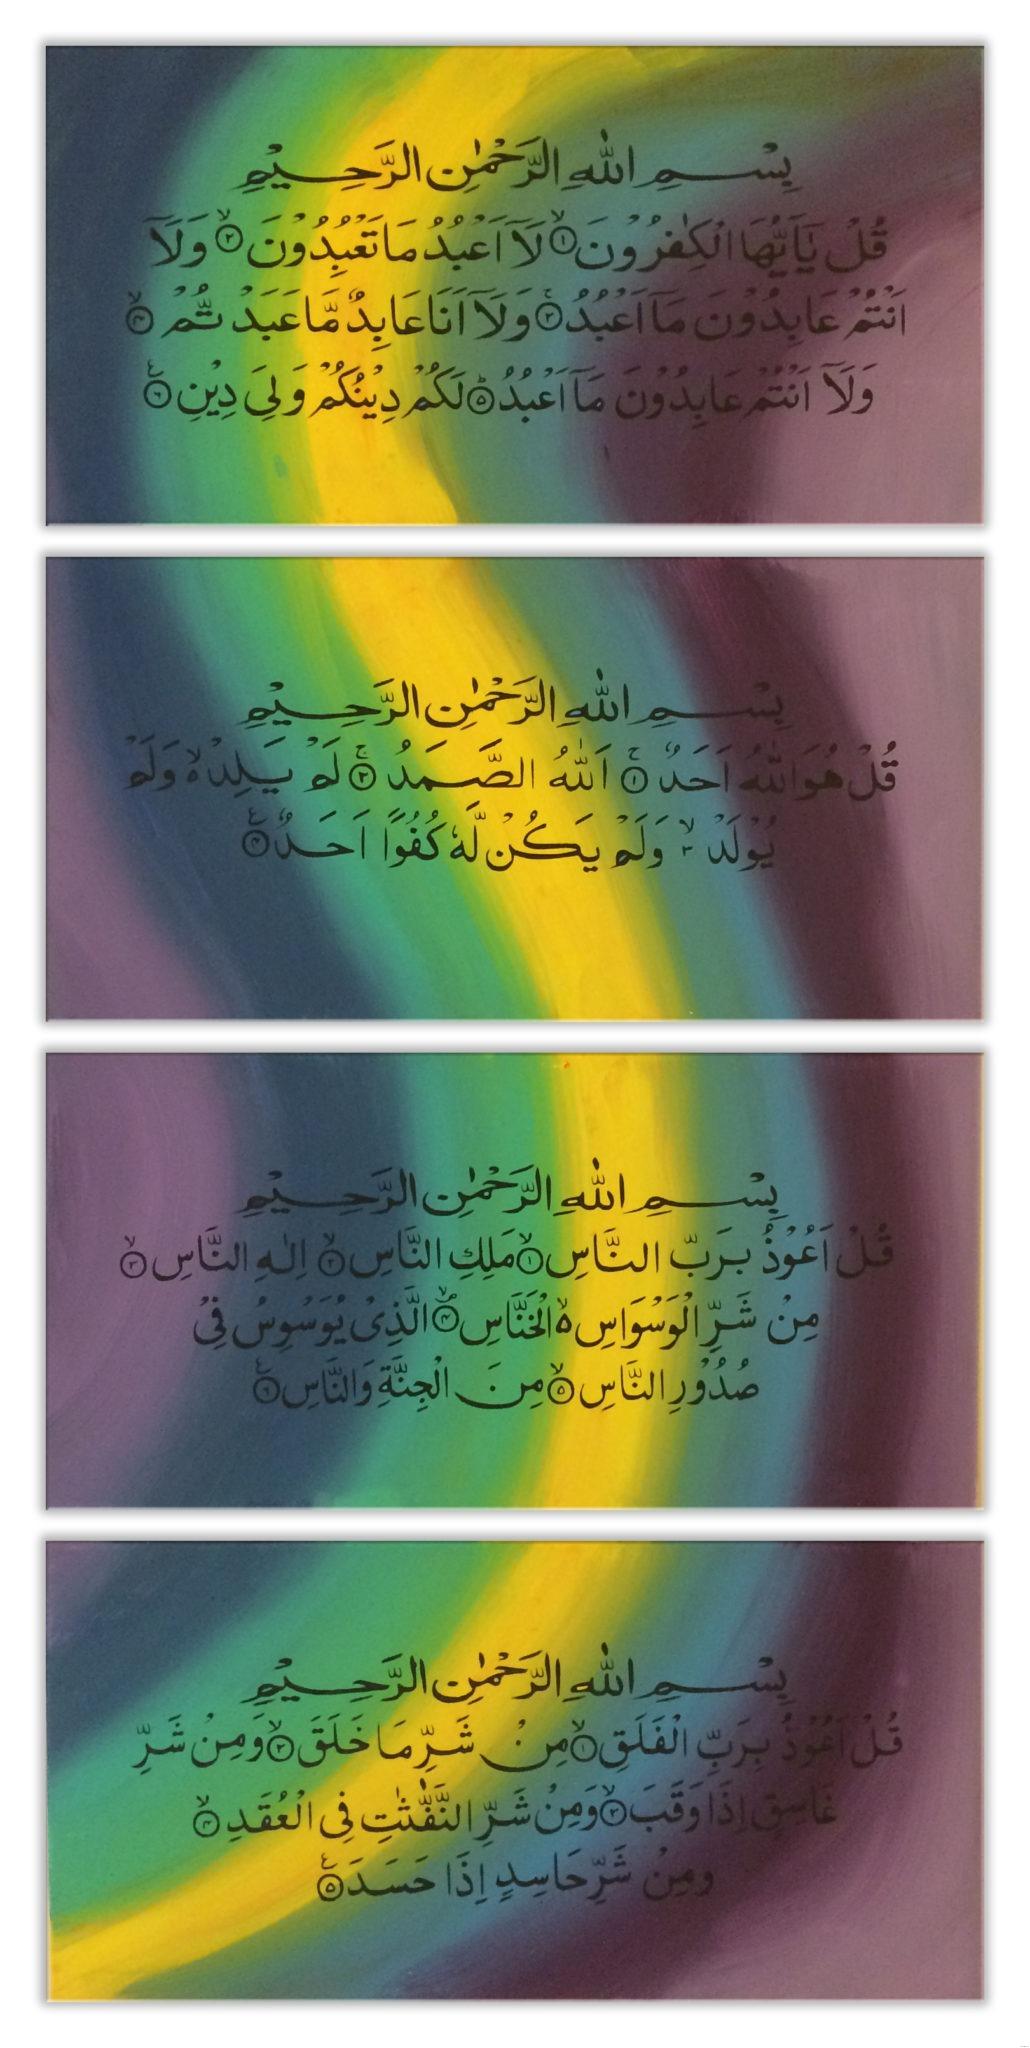 بِسْمِ اللهِ الرَّحْمٰنِ الرَّحِيْمِ
قُلْ يٰٓاَيُّهَا الْكٰفِرُوْنَ ۙ‏﴿۱﴾ لَاۤ اَعْبُدُ مَا تَعْبُدُوْنَ ۙ‏﴿۲﴾ وَلَاۤ
اَنْتُمْ عَابِدُوْنَ مَاۤ اَعْبُدُ ۚ‏﴿۳﴾ وَلَاۤ اَنَا عَابِدٌ مَّا عَبَدْ تُّمْ ۙ‏﴿۴﴾
وَلَاۤ اَنْتُمْ عَابِدُوْنَ مَاۤ اَعْبُدُ ؕ‏﴿۵﴾ لَكُمْ دِيْنُكُمْ وَلِيَ دِيْنِ ‏﴿۶﴾
بِسْمِ اللهِ الرَّحْمٰنِ الرَّحِيْمِ
قُلْ هُوَ اللهُ اَحَدٌ ۚ‏﴿۱﴾ اَللهُ الصَّمَدُ ۚ‏﴿۲﴾ لَمْ يَلِدْ ۙ وَلَمْ
يُوْلَدْ ۙ‏۳ وَلَمْ يَكُنْ لَّهٗ كُفُوًا اَحَدٌ ‏﴿۴﴾
بِسْمِ اللهِ الرَّحْمٰنِ الرَّحِيْمِ
قُلْ اَعُوْذُ بِرَبِّ النَّاسِ ۙ‏﴿۱﴾ مَلِكِ النَّاسِ ۙ‏﴿۲﴾ اِلٰهِ النَّاسِ ۙ‏﴿۳﴾
مِنْ شَرِّ الْوَسْوَاسِ ۙ الْخَنَّاسِ ۙ‏﴿۴﴾ الَّذِيْ يُوَسْوِسُ فِيْ
صُدُوْرِ النَّاسِ ۙ‏﴿۵﴾ مِنَ الْجِنَّةِ وَالنَّاسِ ‏﴿۶﴾
بِسْمِ اللهِ الرَّحْمٰنِ الرَّحِيْمِ
قُلْ اَعُوْذُ بِرَبِّ الْفَلَقِ ۙ‏﴿۱﴾ مِنْ شَرِّ مَا خَلَقَ ۙ‏﴿۲﴾ وَمِنْ شَرِّ
غَاسِقٍ اِذَا وَقَبَ ۙ‏﴿۳﴾ وَمِنْ شَرِّ النَّفّٰثٰتِ فِى الْعُقَدِ ۙ‏﴿۴﴾
وَمِنْ شَرِّ حَاسِدٍ اِذَا حَسَدَ ‏﴿۵﴾